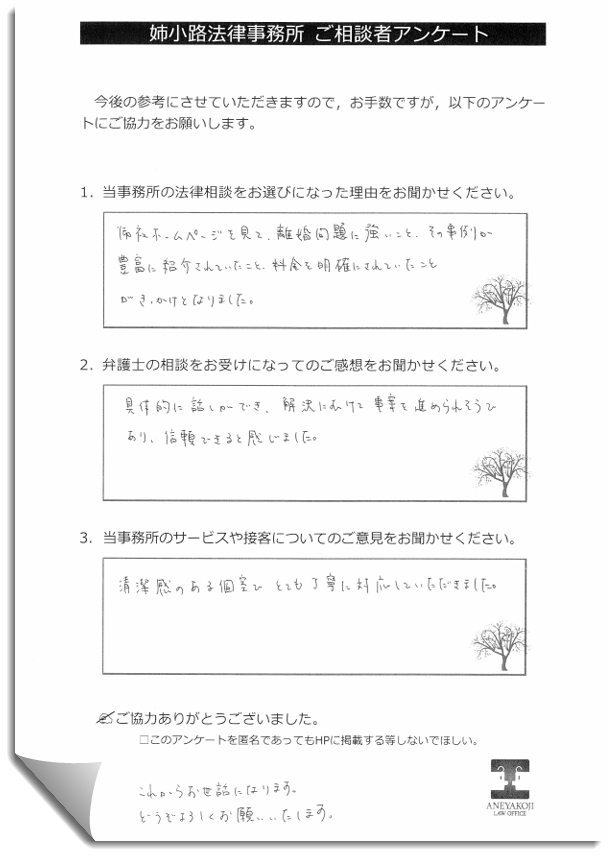 姉小路法律事務所 ご相談者アンケート
今後の参考にさせていただきますので，お手数ですが，以下のアンケー
トにご協力をお願いします。
1．当事務所の法律相談をお選びになった理由をお聞かせください。
御社ホームページを見て、離婚問題に強いこと、その事例が
豊富に紹介されていたこと、料金を明確にされていたこと
がきっかけとなりました。
2．弁護士の相談をお受けになってのご感想をお聞かせください。
具体的に話しができ、解決にむけて事案を進められそうで
あり、信頼できると感じました。
3．当事務所のサービスや接客についてのご意見をお聞かせください。
清潔感のある個室で とても丁寧に対応していただきました。
ご協力ありがとうございました。
□このアンケートを匿名であってもHPに掲載する等しないでほしい。
これからお世話になります。
どうぞよろしくお願いいたします。
ANEYAKOJI
LAW OFFICE